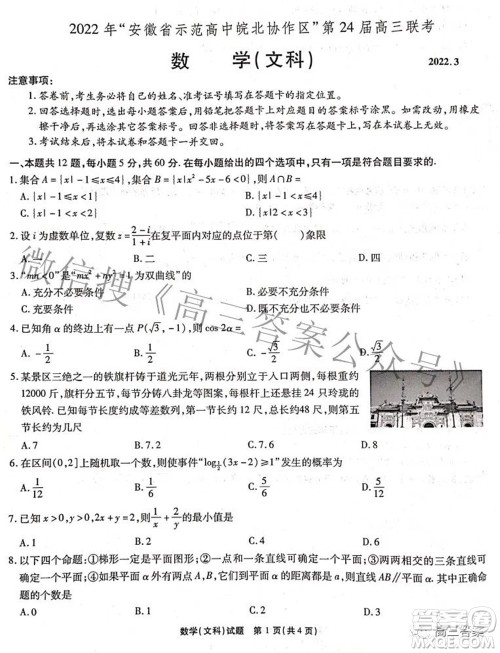 2022 年“安徽省示范高中皖北协作区”第 24 届高三联考
数 学(文科) 2022.3
注意事项:
1. 答卷前,考生务必将自己的姓名、准考证号填写在答题卡的指定位置。
2. 回答选择题时,选出每小题答案后,用铅笔把答题卡对应题目的答案标号涂黑。如需改动,用橡皮
擦干净后,再选涂其它答案标号。回答非选择题时,将答案写在答题卡上。写在本试卷上无效。
3. 考试结束后,将本试卷和答题卡一并交回。
一、本题共 12 题,每小题 5 分,共 60 分。在每小题给出的四个选项中,只有一项是符合题目要求的.
1. 集合 A={x| -1≤x≤4},B={x|x²-5x<0},则 A∩B=
A. {x| -1≤x<0} B. {x|0<x≤4}
C. {x| -1≤x<5} D. {x|2<x<5}
2. 设 i 为虚数单位,复数 z=(2-i)/(1+i) 在复平面内对应的点位于第( )象限
A. 一 B. 二 C. 三 D. 四
3. “mn<0”是“mx²+ny²=1 为双曲线”的
A. 充分不必要条件 B. 必要不充分条件
C. 充要条件
4. 已知角 α 的终边上有一点 P(√3,-1),则 cos2α=
A. -1/2 B. 1/2 C. -√3/2 D. √3/2
5. 某景区三绝之一的铁旗杆铸于道光元年,两根旗杆分别立于人口两侧,每根重约
12000 斤,旗杆分五节,每节分铸八卦龙等图案.每根杆上还悬挂 24 只玲珑的
铁风铃. 已知每节长度约成等差数列,第一节长约 12 尺,总长约 48 尺,则第五
节长约为几尺
A. 7 B. 8 C. 7.2 D. 6.8
6. 在区间(0,2]上随机取一个数,则使“log½(3x-2)≥1”发生的概率为
A. 1/12 B. 1/6 C. 1/5 D. 5/12
7. 已知 x>0,y>0,2x+y=2,则 1/x+2/y 的最小值是
A. 1 B. 2 C. 4 D. 6
8. 以下四个命题:①梯形一定是平面图形;②一点和一条直线可确定一个平面;③两两相交的三条直线可
确定一个平面;④如果平面 α 外有两点 A,B,它们到平面 α 的距离都是 d,则直线 AB//α.其中真命题的
个数为
A. 0 B. 1 C. 2 D. 3
数学(文科)试题 第 1 页(共 4 页)
微信搜《高三答案公众号》
高三答案